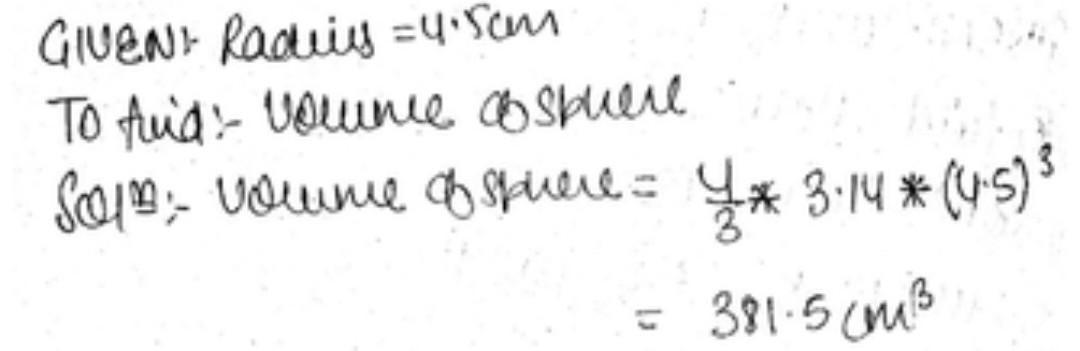 GIVEN:- Radius = 4.5cm
To find:- Volume of sphere
Sol^n:- Volume of sphere = 4/3 * 3.14 * (4.5)^3
= 381.5 cm^3